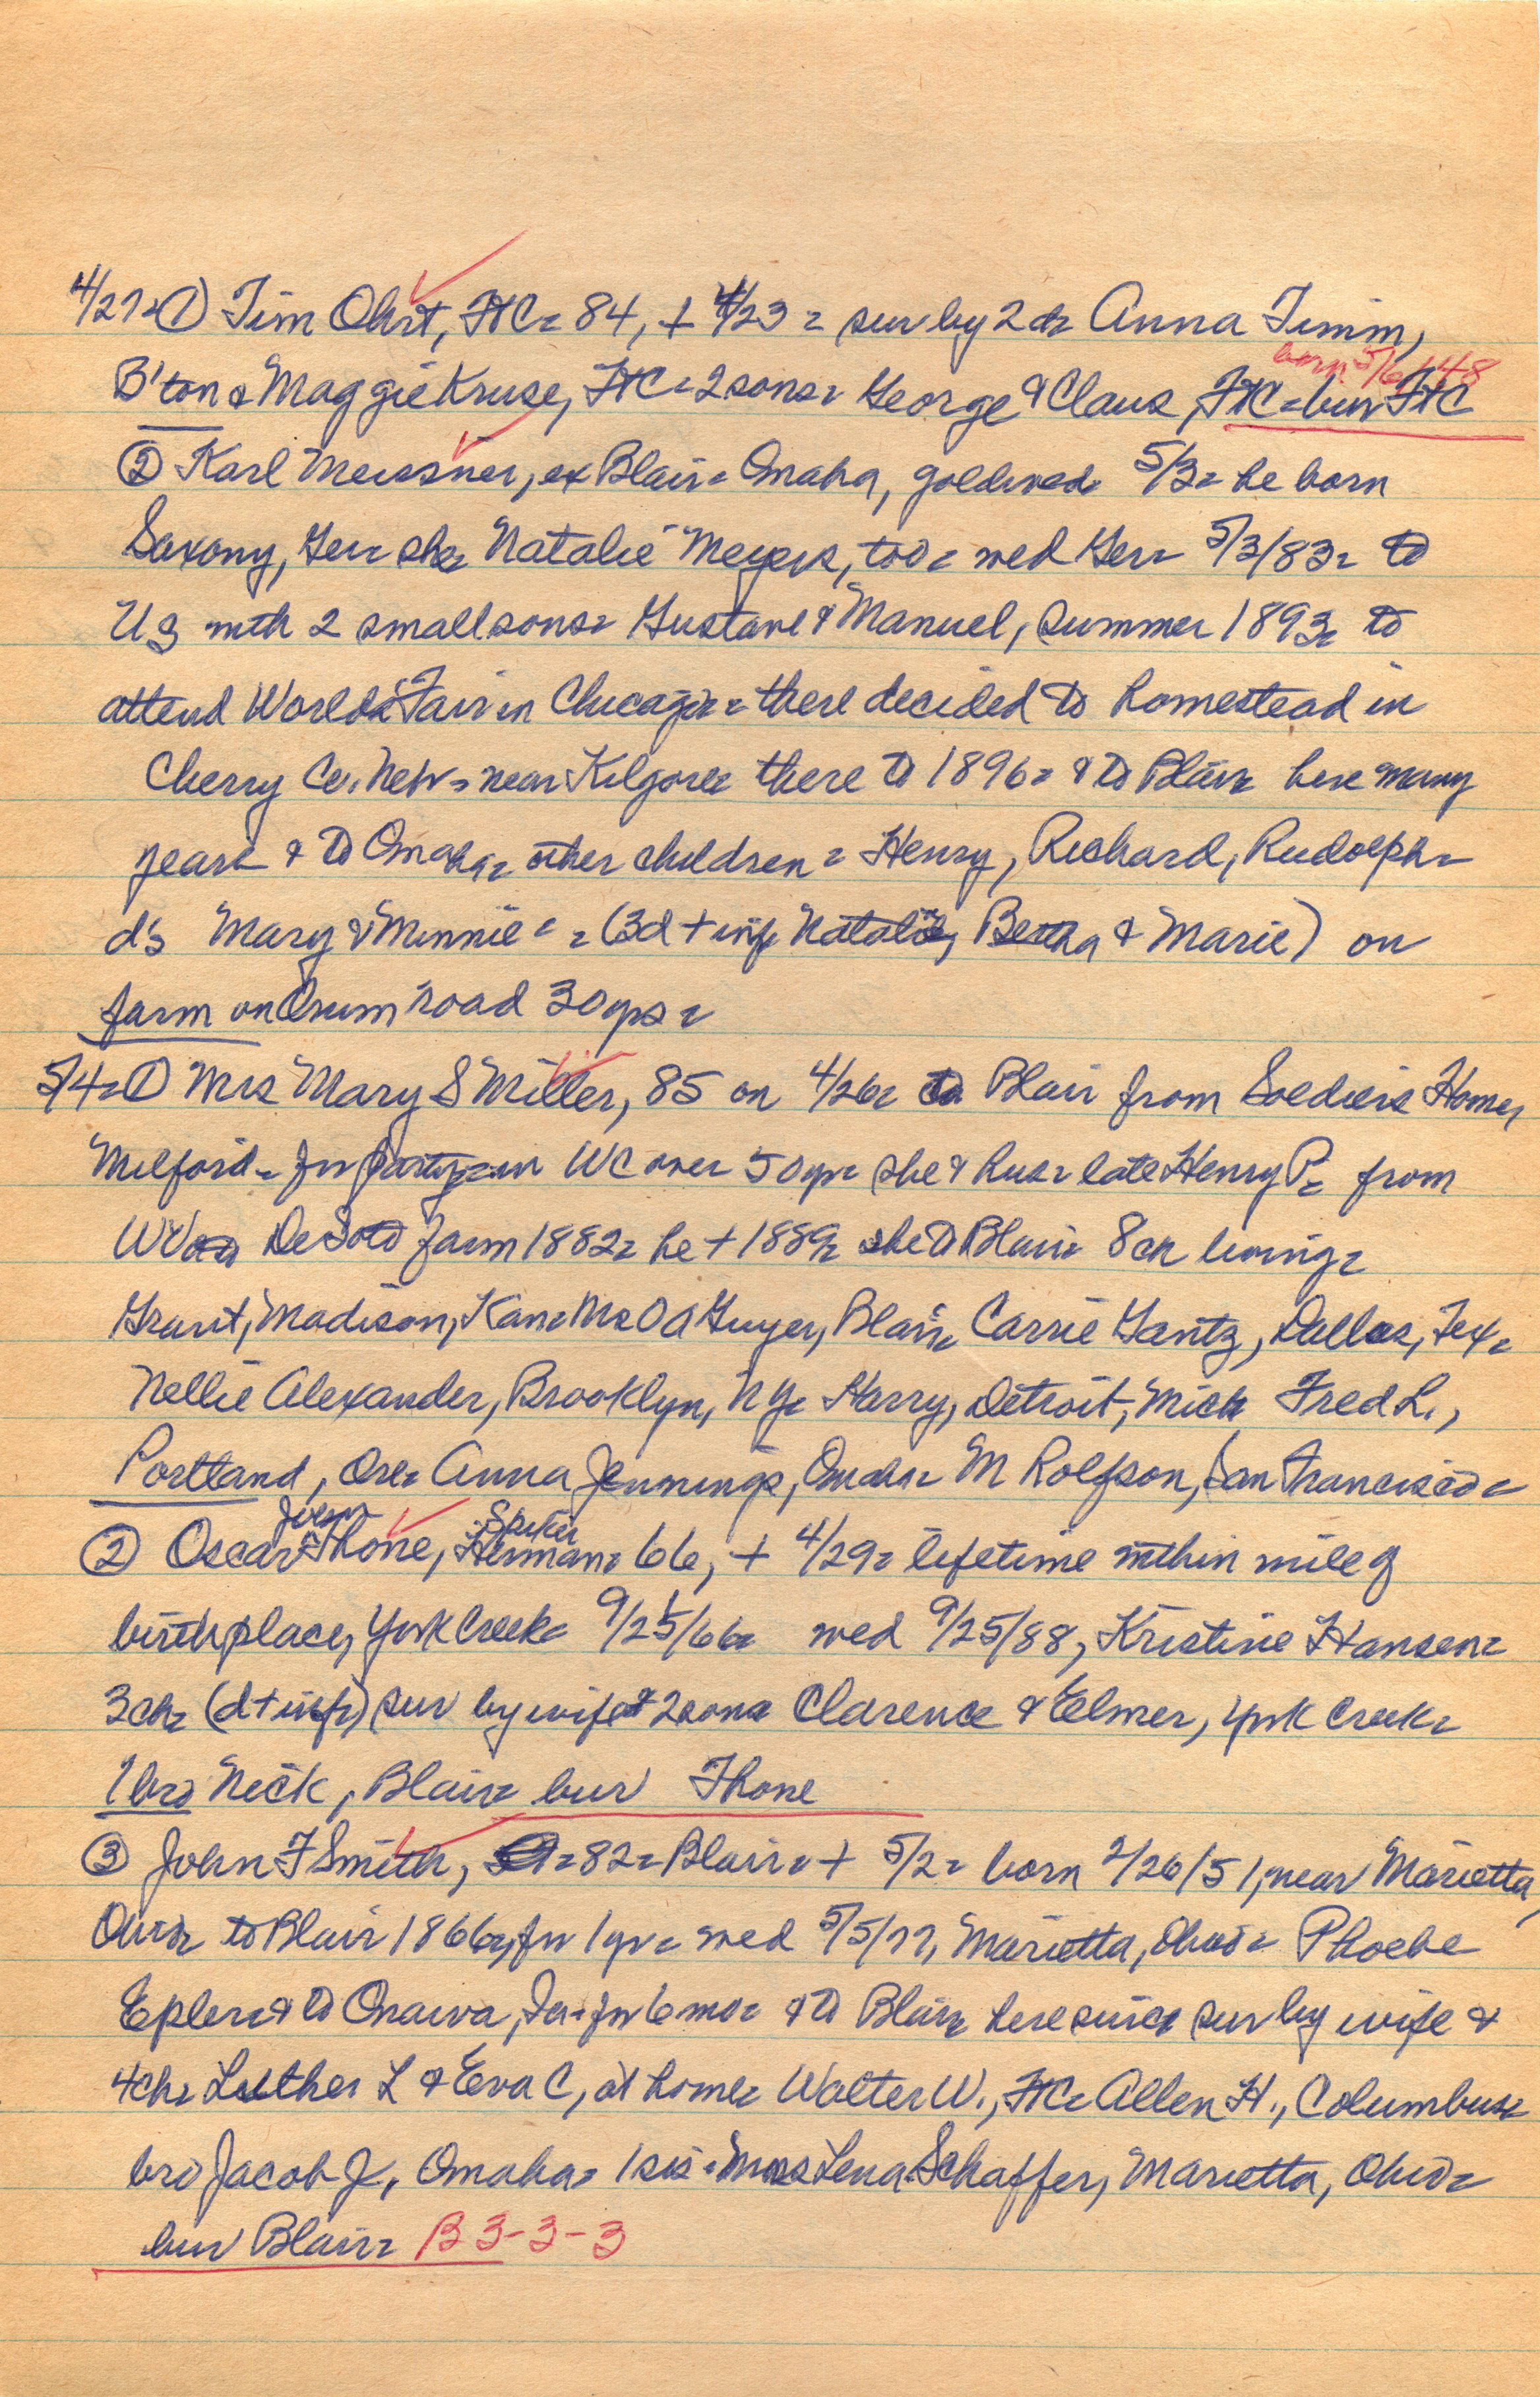 4/27= ① Tim Ohrt, FtC= 84, + 4/23 = sur by 2 d= Anna Timm,
born 5/6/1848
B'ton & Maggie Kruse, FtC= 2 sons= George & Claus, FtC= bur FtC
② Karl Meissner, ex Blair= Omaha, goldwed= 5/3= he born
Saxony, Ger= she= Natalie Meyers, too= wed Ger= 5/3/83= to
US with 2 small sons= Gustave & Manuel, summer 1893= to
attend World's Fair in Chicago= there decided to homestead in
Cherry Co. Neb= near Kilgore= there to 1896= & to Blair= here many
years & to Omaha= other children= Henry, Richard, Rudolph=
d's Mary & Minnie= = (3d + inf= Natalie, Bertha & Marie) on
farm on Orum road 30yrs=
5/4= ① Mrs Mary S Miller, 85 on 4/26= to Blair from Soldiers Home,
Milford= for party= in WC over 50yr= she & hus= late Henry P= from
DeSoto farm 1882= he + 1889= she to Blair= 8ch living=
Grant, Madison, Kan= Mrs O A Guyer, Blair= Carrie Gantz, Dallas, Tex=
Nellie Alexander, Brooklyn, NY= Harry, Detroit, Mich Fred L.,
Portland, Ore= Anna Jennings, Omaha= M Rolfson, San Francisco=
Spiker
② Oscar Thone, Herman= 66, + 4/29= lifetime within mile of
birthplace, York Creek= 9/25/66= wed 9/25/88, Kristine Hansen=
3ch= (d + inf=) sur by wife & 2 sons Clarence & Elmer, York Creek=
1 bro Nick, Blair= bur Thone
③ John F Smith, 82= Blair= + 5/2= born 2/26/51, near Marietta,
Ohio= to Blair 1866=, for 1yr= wed 5/5/77, Marietta, Ohio= Phoebe
Epler= & to Onawa, Ia= for 6mo= & to Blair= here since sur by wife &
4ch= Luther L & Eva C, at home= Walter W., FtC= Allen H., Columbus=
bro Jacob J, Omaha= 1 sis= Mrs Lena Schaffer, Marietta, Ohio=
bur Blair= B 3-3-3